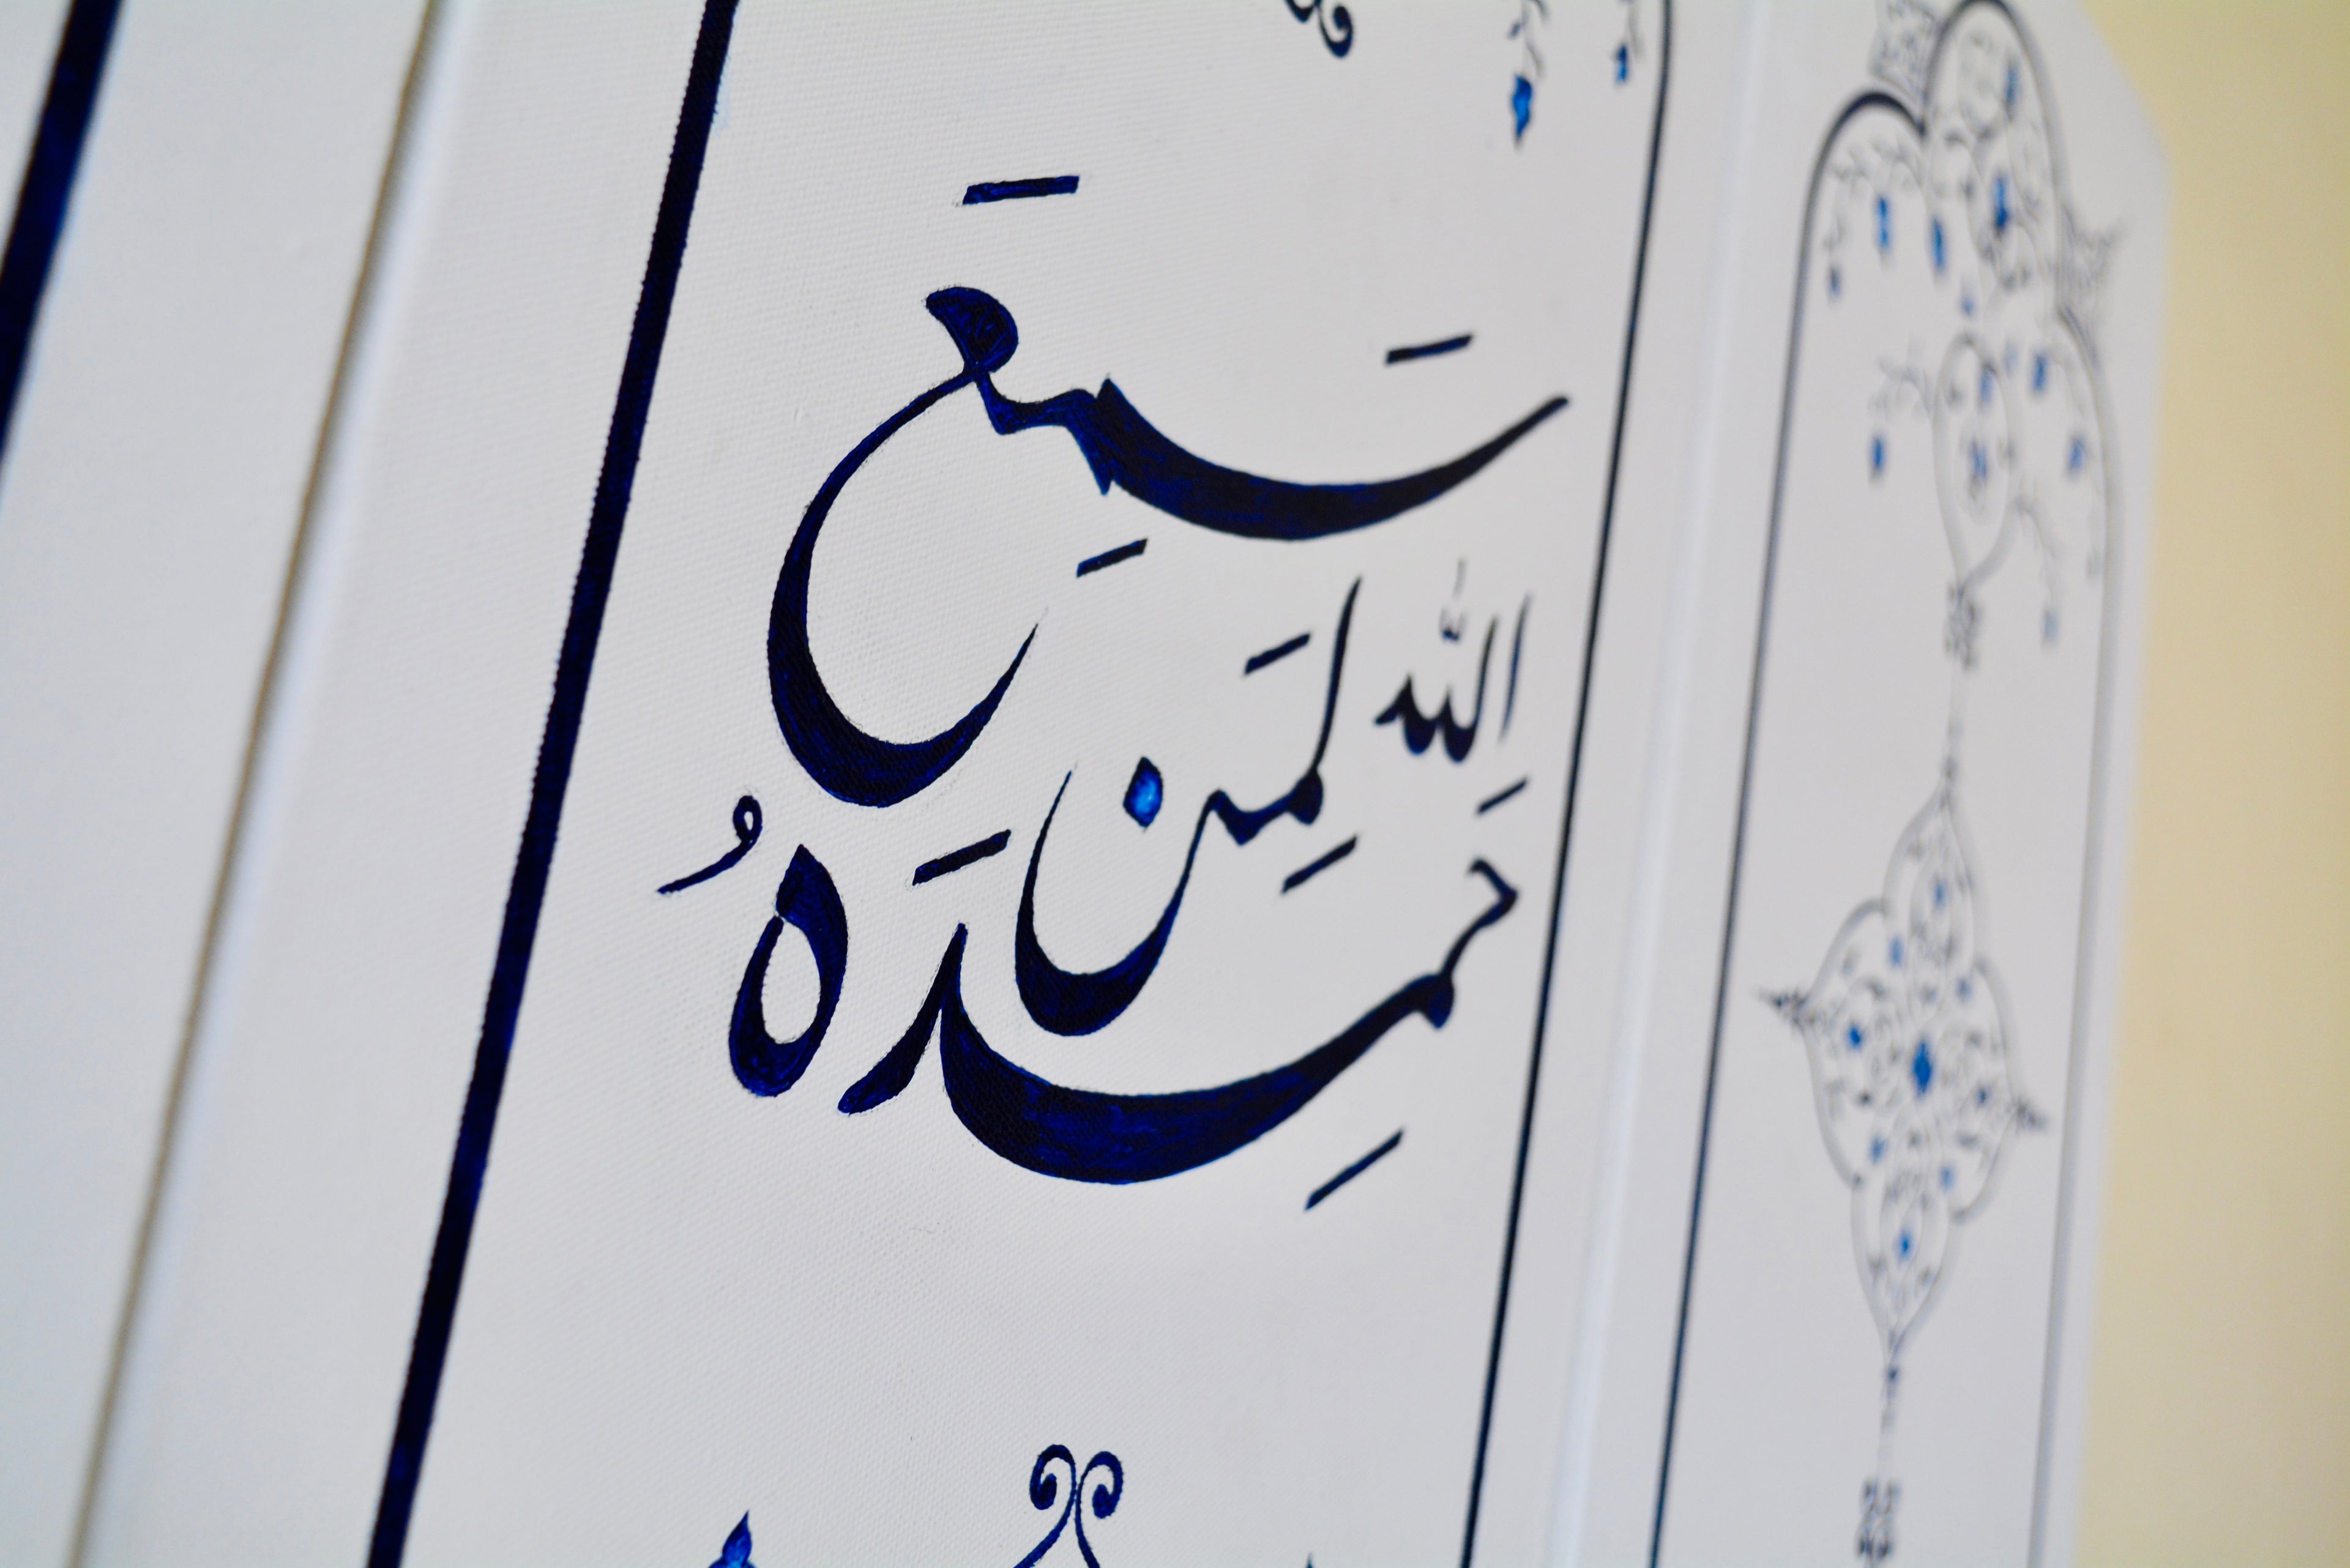 سَمِعَ
اللّٰه لِمَن
حَمِدَهُ